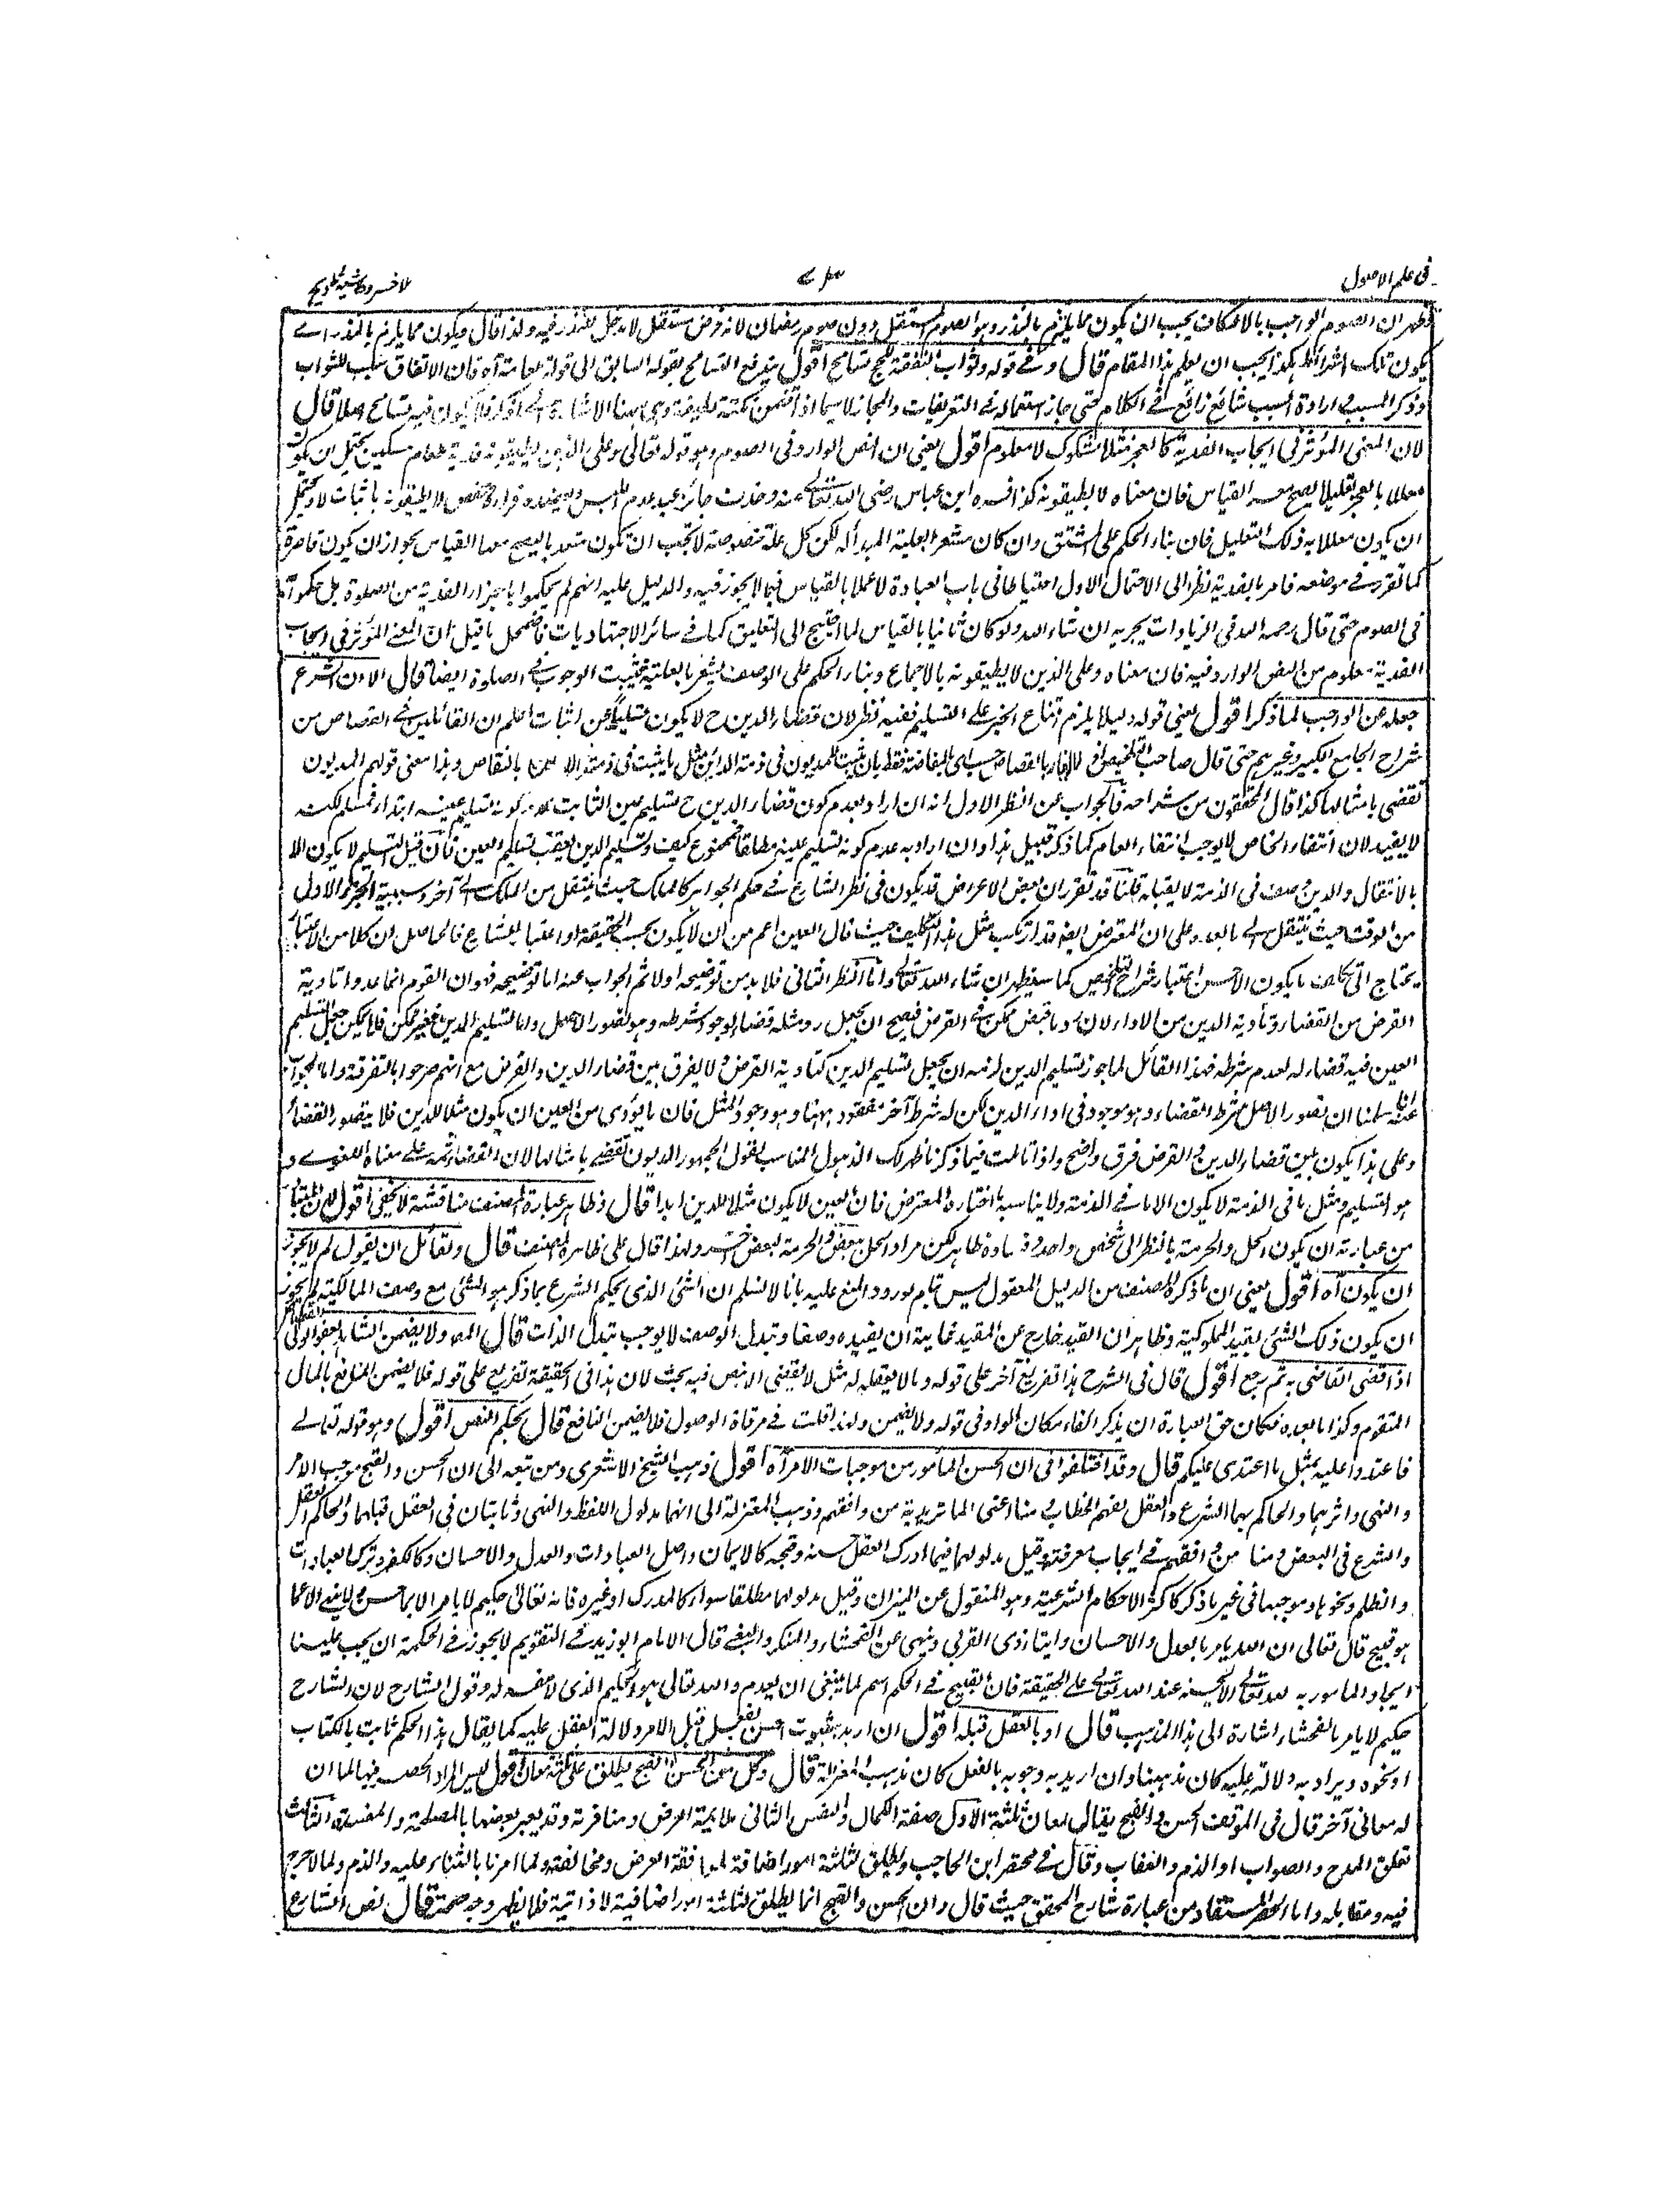 فى علم الاصول
ملا خسرو حاشية تلويح
فظهر ان الصوم الواجب بالاعتكاف يجب ان يكون مما يلتزم بالنذر وهو الصوم المستقل دون صوم رمضان لانه فرض مستقل لا دخل للنذر فيه ولذا قال فيكون مما يلزم بالنذر اے
يكون تلك الشرائط هكذا يجب ان يعلم هذا المقام قال و فے قوله وثواب النفقة للحج تسامح اقول يندفع التسامح بقوله السابق الى قوله معاملته آه فان الانفاق سبب للثواب
وذكر المسبب وارادة السبب شائع ذائع فے الكلام حتى جاز استعماله فے التعريفات والمجاز لا سيما اذا تضمن نكتة لطيفة وهى ههنا الاشارة الى فلا يكون فيه تسامح اصلا قال
لان المعنى المؤثر فى ايجاب الفدية كالعجز مثلا مشكوك لا معلوم اقول يعنى ان النص الوارد فى الصوم وهو قوله تعالى وعلى الذين يطيقونه فدية طعام مسكين يحتمل ان يكون
معللا بالعجز تعليلا يصح معه القياس فان معناه لا يطيقونه كذا فسره ابن عباس رضى الله تعالے عنه وحذف لا جائز عند عدم اللبس لا يطيقونه باثبات لا ويحتمل
ان يكون معللا به ذلك التعليل فان بناء الحكم على المشتق وان كان مشعرا بعلية المبدأ له لكن كل علة منصوصة لا تجب ان تكون متعدية ليصح معها القياس لجواز ان يكون قاصرة
كما تقرر فے موضعه فامر بالفدية نظرا الى الاحتمال الاول احتياطا فى باب العبادة لا عملا بالقياس فيما لا يجوز فيه والدليل عليه انهم لم يحكموا باجزاء الفدية من الصلوة بل حكموا به
فى الصوم حتى قال رحمه الله فى الزيادات يجزيه ان شاء الله ولو كان ثابتا بالقياس لما احتيج الى التعليق كما فے سائر الاجتهاديات فاضمحل ما قيل ان المعنى المؤثر فى ايجاب
الفدية معلوم من النص الوارد فيه فان معناه وعلى الذين لا يطيقونه بالاجماع وبناء الحكم على الوصف مشعر بالعلية فيثبت الوجوب فے الصلوة ايضا قال الا ان الشرع
جعله عين الواجب لما ذكر اقول يعنى قوله دليلا يلزم امتناع الجبر على التسليم ففيه نظر لان قضاء الدين ح لا يكون تسليما عين الثابت اعلم ان القائلين فے القصاص من
شراح الجامع الكبير وغيرهم حتى قال صاحب التلخيص بان يثبت للمديون فى ذمة الدائن مثل ما يثبت فى ذمته بالتقاص وهذا معنى قولهم الديون
تقضى بامثالها كذا قال المحققون من شراحه فالجواب عن النظر الاول انه ان اراد بعدم كون قضاء الدين ح تسليم عين الثابت عدم كونه تسليم عينه ابتداء فمسلم لكنه
لا يفيد لان انتفاء الخاص لا يوجب انتفاء العام كما ذكر قبيل هذا وان اراد به عدم كونه تسليم عينه مطلقا فممنوع كيف وتسليم الدين يعقب تسليم العين فان قيل التسليم لا يكون الا
بالانتقال والدين وصف فى الذمة لا يقبله قلنا قد تقرر ان بعض الاعراض قد يكون فى نظر الشارع فے حكم الجواهر كالملك حيث ينتقل من المالك الے آخر وسببية الجزء الاولى
من الوقت حيث تنتقل الے ما بعده وعلى ان المعترض ايضه قد ارتكب مثل هذا التكلف حيث قال العين اعم من ان لا يكون بحسب الحقيقة او اعتبار الشارع فالحاصل ان كلا من الاعتبار
يحتاج الى تكلف ما يكون الاحسن اعتبار شراح التلخيص كما سيظهر ان شاء الله تعالے واما النظر الثانى فلا بد من توضيحه اولا ثم الجواب عنه اما توضيحه فهو ان القوم انما عدوا تادية
القرض من القضاء وتأدية الدين من الاداء لان رد ما قبض ممكن فے القرض فيصح ان يجعل رد مثله قضاء لوجود شرطه وهو تصور الاصل واما تسليم الدين فغير ممكن فلا يمكن جعل تسليم
العين فيه قضاء له لعدم شرطه فهذا القائل لما جوز تسليم الدين لزمه ان يجعل تسليم الدين كتادية القرض ولا يفرق بين قضاء الدين والقرض مع انهم صرحوا بالتفرقة واما الجواب
عنه فانا سلمنا ان تصور الاصل شرط القضاء وهو موجود فى اداء الدين لكن له شرط آخر مفقود ههنا وهو وجود المثل فان ما يؤدى من العين ان يكون مثلا للدين فلا يتصور القضاء
وعلى هذا يكون بين قضاء الدين والقرض فرق واضح واذا تاملت فيما ذكرنا ظهر لك الذهول المناسب لقول الجمهور الديون تقضے بامثالها لان القضاء ثمه علے معناه اللغوے و
هو التسليم ومثل ما فى الذمة لا يكون الا ما فے الذمة ولا يناسب ما اختاره المعترض فان العين لا يكون مثلا للدين ابدا قال وظاهر عبارة المصنف مناقشة لا يخفى اقول لان المتبادر
من عبارته ان يكون الحل والحرمة بالنظر الى شخص واحد وفساده ظاهر لكن مراده الحل لبعض والحرمة لبعض آخر ولهذا قال على ظاهر المصنف قال ولقائل ان يقول لم لا يجوز
ان يكون آه اقول يعنى ان ما ذكره المصنف من الدليل المعقول ليس بتام لورود المنع عليه بانا لا نسلم ان الشئ الذى يحكم الشرع بما ذكر هو الشئ مع وصف المالكية لم لا يجوز
ان يكون ذلك الشئ بقيد المملوكية وظاهر ان القيد خارج عن المقيد غاية ان يفيده وصفا وتبدل الوصف لا يوجب تبدل الذات قال المصه ولا يضمن الشاهد بعفو الولى القصاص
اذا قضى القاضى به ثم رجع اقول قال فى الشرح هذا تفريع آخر على قوله وما لا يعقل له مثل لا يقضى الا بنص فيه بحث لان هذا فى الحقيقة تفريع على قوله فلا يضمن المنافع بالمال
المتقوم وكذا ما بعده فكان حق العبارة ان يذكر الفاء مكان الواو فى قوله ولا يضمن ولهذا قلت فے مرقاة الوصول فلا يضمن المنافع قال بحكم النص اقول وهو قوله تعالے
فاعتدوا عليه بمثل ما اعتدى عليكم قال وقد اختلفوا فى ان الحسن المأمور من موجبات الامر آه اقول ذهب الشيخ الاشعرى ومن تبعه الى ان الحسن والقبح موجب الامر
والنهى واثرهما والحاكم بهما الشرع والعقل يفهم الخطاب منا اعنى الماتريدية من وافقهم وذهب المعتزلة الى انهما مدلول اللفظ والنهى وثابتان فى العقل قبلهما والحاكم العقل
والشرع فى البعض ومنا من وافقهم فے ايجاب معرفته وقيل مدلولهما فيما ادرك العقل حسنه وقبحه كالايمان واصل العبادات والعدل والاحسان وكالكفر وترك العبادات
والظلم ونحوها وموجبهما فى غير ما ذكر كاكثر الاحكام الشرعية وهو المنقول عن الميزان وقيل مدلولهما مطلقا سواء كالمدرك او غيره فانه تعالى حكيم لا يامر الا بما حسن ولا ينهى الا عما
هو قبيح قال تعالى ان الله يامر بالعدل والاحسان وايتاء ذى القربى وينهى عن الفحشاء والمنكر والبغے قال الامام ابو زيد فے التقويم لا يجوز فے الحكمة ان يجب علينا
ايجاد المامور به لله تعالے الا لحسنه عند الله تعالے على الحقيقة فان القبيح فے الحكم اسم لما ينبغى ان يعدم والله تعالى هو الحكيم الذى لا سفه له وقول الشارح لان الشارح
حكيم لا يامر بالفحشاء اشارة الى هذا المذهب قال او بالعقل قبله اقول ان اريد بثبوت الحسن بالعقل قبل الامر دلالة العقل عليه كما يقال هذا الحكم ثابت بالكتاب
او نحوه ويراد به دلالته عليه كان مذهبنا وان اريد به وجوبه بالعقل كان مذهب المعتزلة قال وكل من الحسن والقبح يطلق على ثلثة معان اقول ليس المراد الحصر فيها لما ان
له معانى آخر قال فى المواقف الحسن والقبح يقال لمعان ثلثة الاول صفة الكمال والنقص الثانى ملايمة الغرض ومنافرته وقد يعبر بعضهما بالمصلحة والمفسدة الثالث
تعلق المدح والثواب او الذم والعقاب وقال فے مختصر ابن الحاجب ويطلق لثلثة امور اضافية لموافقة الغرض ومخالفته ولما امرنا بالثناء عليه والذم ولما لا حرج
فيه ومقابله واما الحصر المستفاد من عبارة شارح المحقق حيث قال وان الحسن والقبح انما يطلق لثلثة امور اضافية لا ذاتية فلا يظهر وجه صحته قال نص الشارع